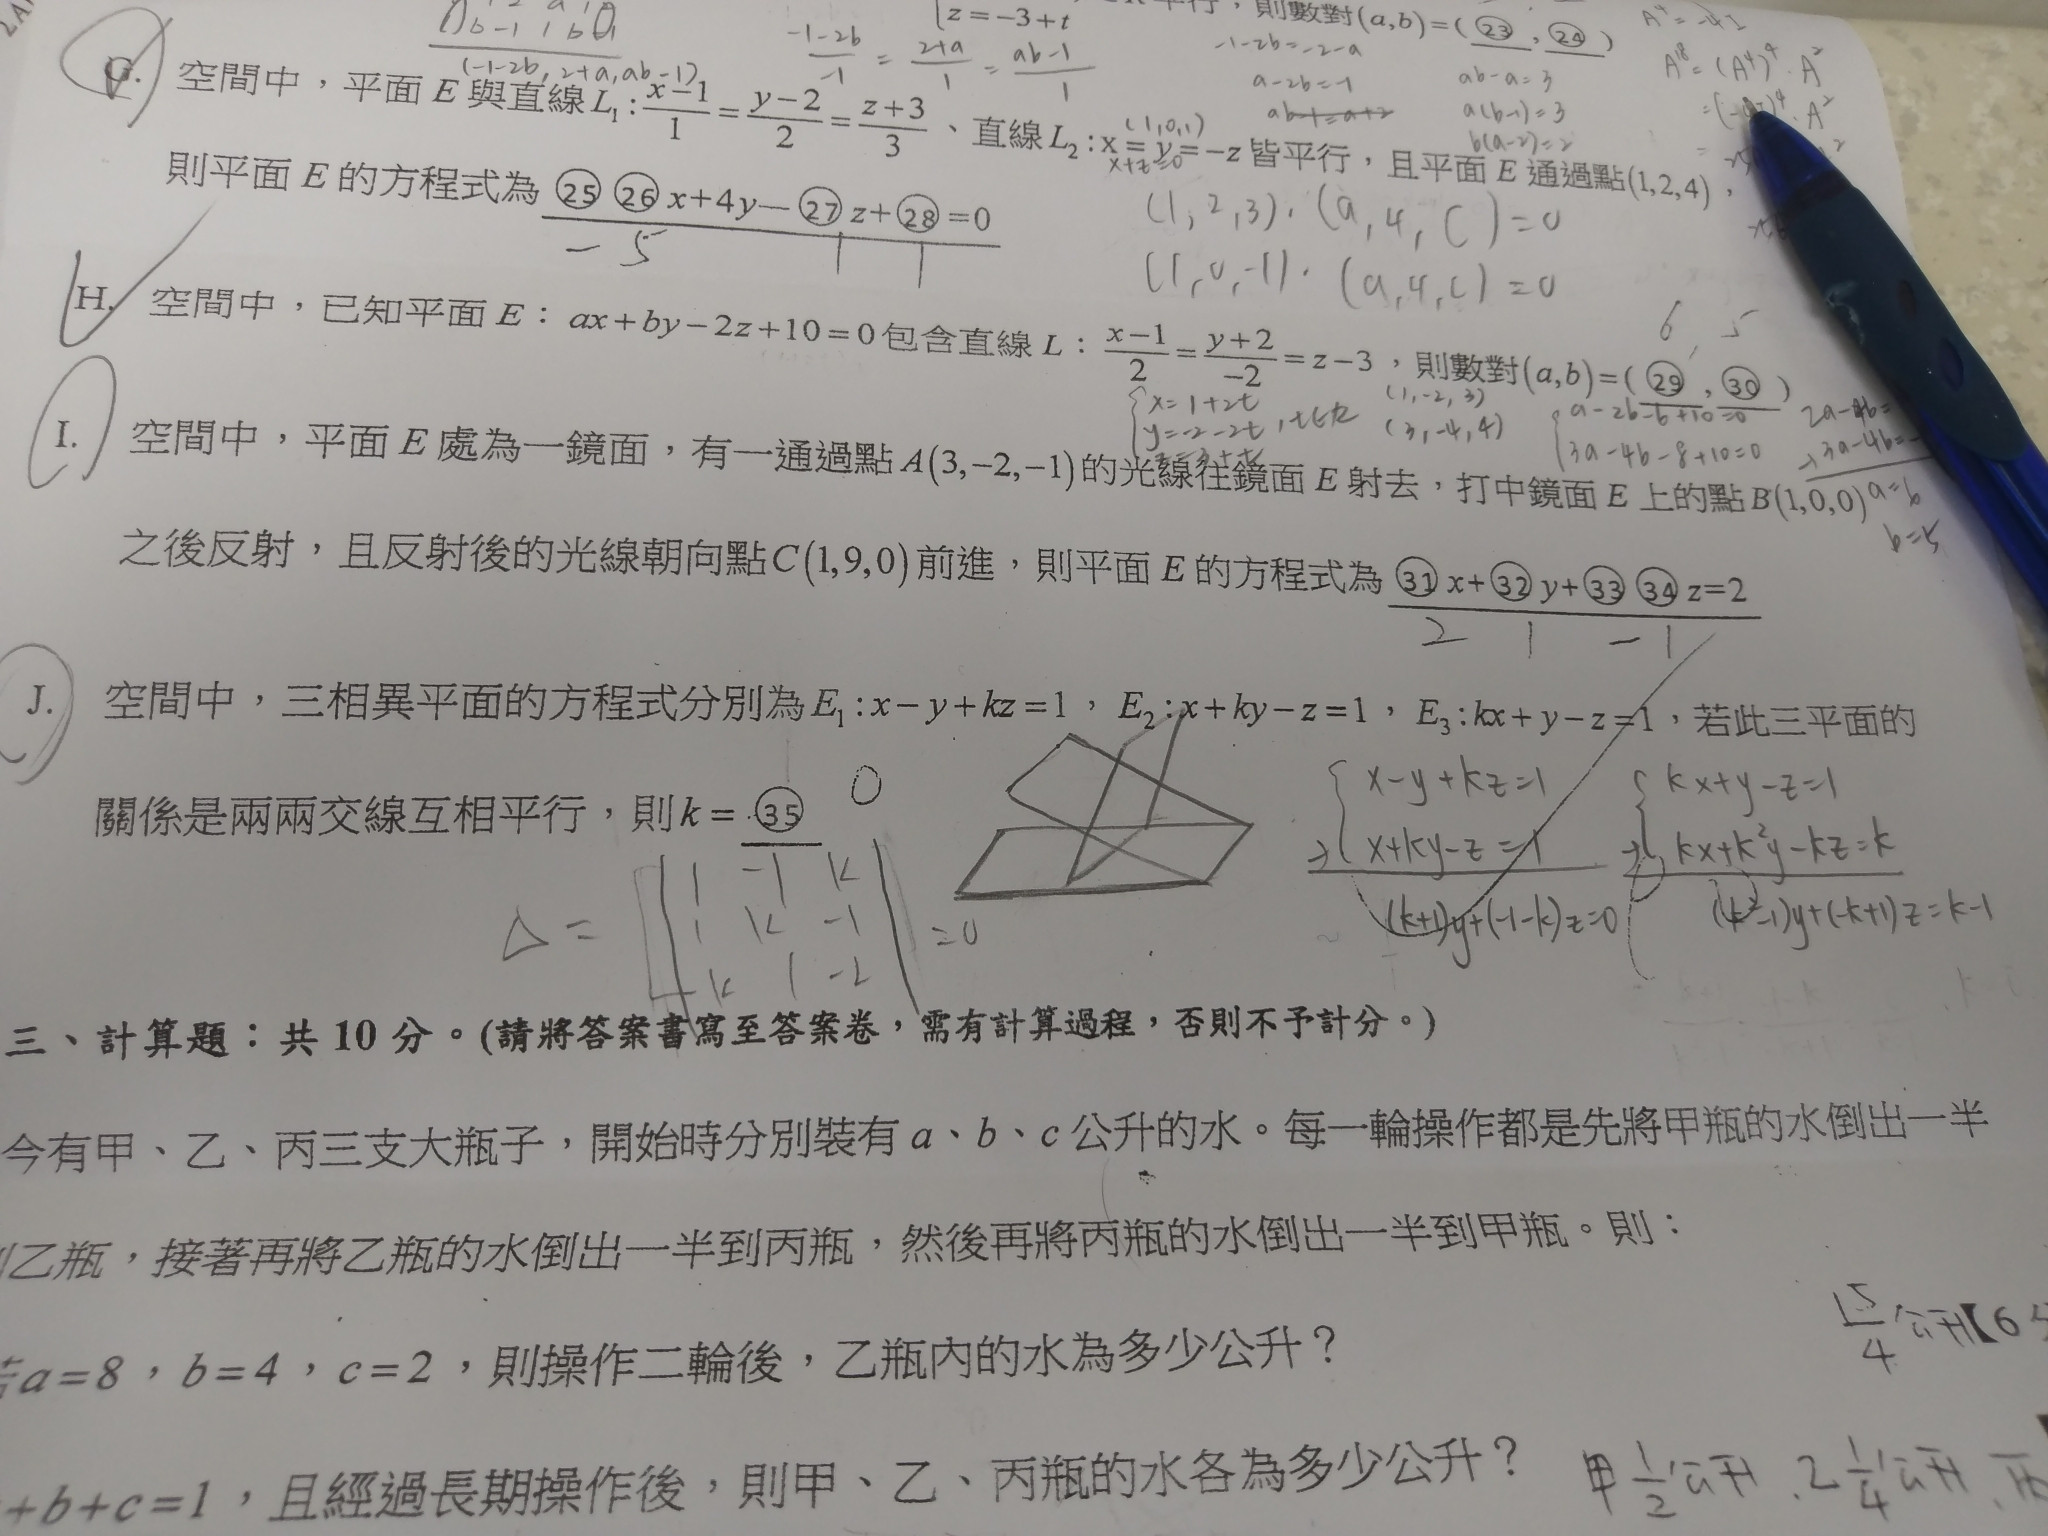 z=-3+t
平行，則數對(a,b)=(㉓,㉔)
A⁴=-4I
(-1-2b, 2+a, ab-1)
(-1-2b)/(-1) = (2+a)/1 = (ab-1)/1
-1-2b=-2-a
a-2b=-1
ab-1=a+2
ab-a=3
a(b-1)=3
b(a-2)=2
A¹⁸=(A⁴)⁴·A²
G. 空間中，平面 E 與直線 L₁: (x-1)/1 = (y-2)/2 = (z+3)/3、直線 L₂: x=y=-z 皆平行，且平面 E 通過點(1,2,4)，
(1,0,1)
x+z=0
則平面 E 的方程式為 ㉕ ㉖ x+4y—㉗ z+㉘=0
- 5 1 1
(1,2,3)·(a,4,c)=0
(1,0,-1)·(a,4,c)=0
H. 空間中，已知平面 E：ax+by-2z+10=0 包含直線 L：(x-1)/2 = (y+2)/-2 = z-3，則數對(a,b)=(㉙,㉚)
6, 5
x=1+2t
y=-2-2t, t∈R
(1,-2,3)
(3,-4,4)
a-2b-6+10=0
3a-4b-8+10=0
2a-4b=
3a-4b=-
a=6
b=5
I. 空間中，平面 E 處為一鏡面，有一通過點 A(3,-2,-1)的光線往鏡面 E 射去，打中鏡面 E 上的點 B(1,0,0)
之後反射，且反射後的光線朝向點 C(1,9,0)前進，則平面 E 的方程式為 ㉛ x+㉜ y+㉝ ㉞ z=2
2 1 -1
J. 空間中，三相異平面的方程式分別為 E₁:x-y+kz=1，E₂:x+ky-z=1，E₃:kx+y-z=1，若此三平面的
關係是兩兩交線互相平行，則 k= ㉟
0
Δ = | 1 -1 k |
| 1 k -1 | =0
| k 1 -2 |
x-y+kz=1
x+ky-z=1
(k+1)y+(-1-k)z=0
kx+y-z=1
kx+k²y-kz=k
(k²-1)y+(-k+1)z=k-1
三、計算題：共 10 分。(請將答案書寫至答案卷，需有計算過程，否則不予計分。)
今有甲、乙、丙三支大瓶子，開始時分別裝有 a、b、c 公升的水。每一輪操作都是先將甲瓶的水倒出一半
到乙瓶，接著再將乙瓶的水倒出一半到丙瓶，然後再將丙瓶的水倒出一半到甲瓶。則：
若a=8，b=4，c=2，則操作二輪後，乙瓶內的水為多少公升？
15/4 公升【6
+b+c=1，且經過長期操作後，則甲、乙、丙瓶的水各為多少公升？
甲 1/2 公升、乙 1/4 公升、丙